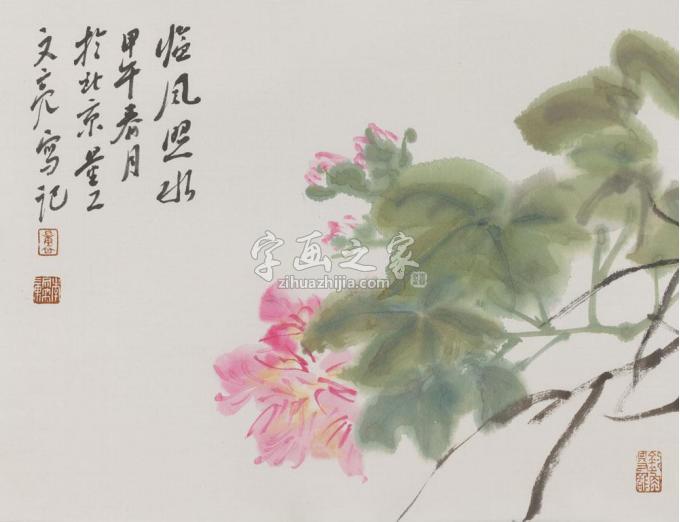 临风照水
甲午春月
於北京景山
文亮写记
字画之家
zihuazhijia.com